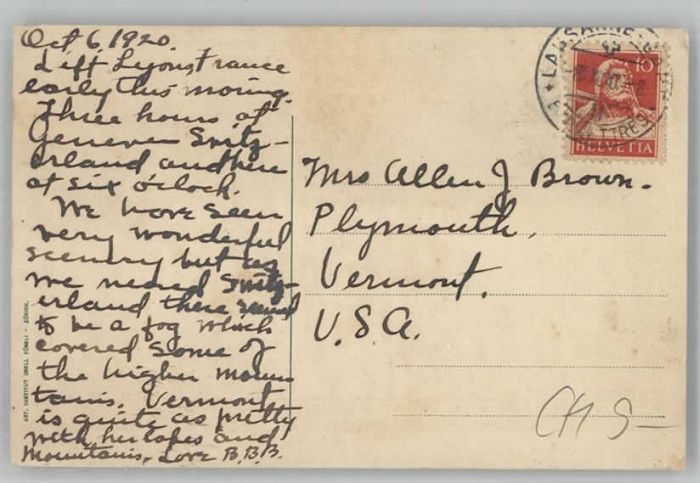 Oct 6, 1920.
Left Lyons, France
early this moring.
Three hours at
Geneva Switz-
erland and here
at six o'clock.
We have seen
very wonderful
scenery but as
we neared Switz-
erland there seemed
to be a fog which
covered some of
the higher moun
tains. Vermont
is quite as pretty
with her lakes and
Mountains. Love B.B.B.
ART. INSTITUT ORELL FÜSSLI - ZÜRICH.
LAUSANNE
LETTRES
10
HELVETIA
Mrs Allen J Brown.
Plymouth,
Vermont.
U.S.A.
CHS-